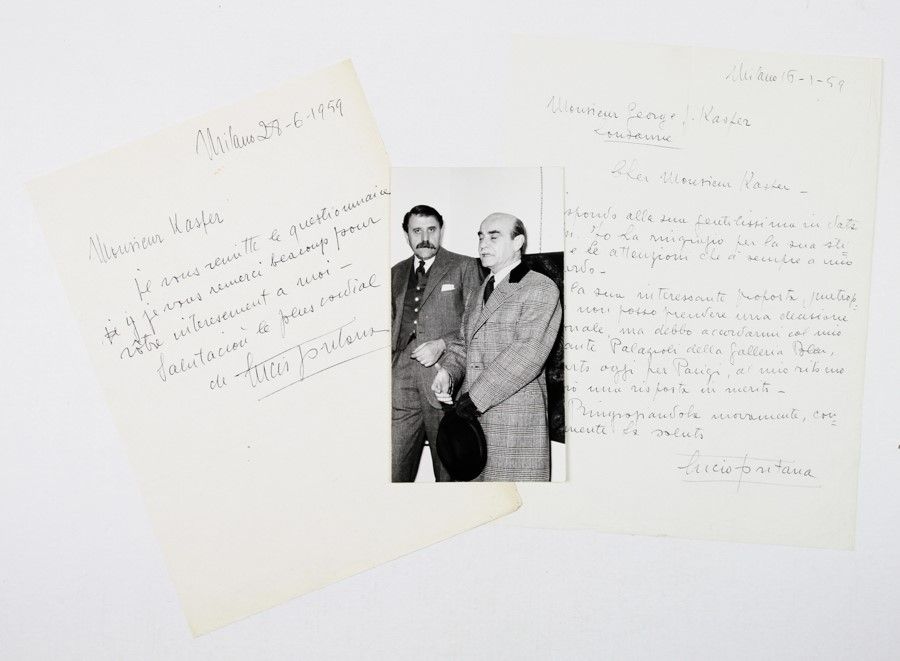 Milano 28-6-1959
Monsieur Kasper
Je vous remette le questionnaire
je vous remerci beaucoup pour
vôtre interesement a moi -
Salutacion le plus cordial
de Lucio fontana
Milano 15-1-59
Monsieur George J. Kasper
Lousanne
Cher Monsieur Kasper -
spondo alla sua gentilissima in data
La ringrazio per la sua sti
e le attenzioni che a sempre a mio
ardo -
la sua interessante proposta, purtrop=
non posso prendere una decisione
onale, ma debbo accordarmi col mio
ante Palazzoli della Galleria Blu,
arto oggi per Parigi, al mio ritorno
ò una risposta in merito -
Ringraziandola novamente, cor=
mente la saluto
Lucio fontana